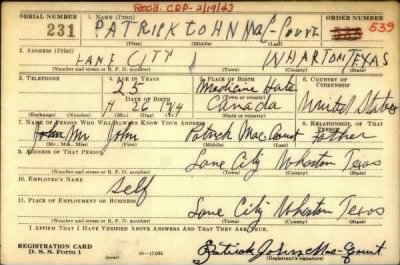 Recd. CDP-2/19/43
SERIAL NUMBER 1. NAME (Print) ORDER NUMBER
231 PATRICK JOHN MAC-Court 539
(First) (Middle) (Last)
2. ADDRESS (Print)
LANE CITY WHARTON TEXAS
(Number and street or R. F. D. number) (Town) (County) (State)
3. TELEPHONE 4. AGE IN YEARS 5. PLACE OF BIRTH 6. COUNTRY OF CITIZENSHIP
25 Medicine Hate United States
DATE OF BIRTH (Town or county)
26 /14 Canada
(Exchange) (Number) (Mo.) (Day) (Yr.) (State or country)
7. NAME OF PERSON WHO WILL ALWAYS KNOW YOUR ADDRESS 8. RELATIONSHIP OF THAT PERSON
John Mr John Patrick Mac Court father
(Mr., Mrs., Miss) (First) (Middle) (Last)
9. ADDRESS OF THAT PERSON
Lane City Wharton Texas
(Number and street or R. F. D. number) (Town) (County) (State)
10. EMPLOYER'S NAME
Self
11. PLACE OF EMPLOYMENT OR BUSINESS
Lane City Wharton Texas
(Number and street or R. F. D. number) (Town) (County) (State)
I AFFIRM THAT I HAVE VERIFIED ABOVE ANSWERS AND THAT THEY ARE TRUE.
REGISTRATION CARD
D. S. S. Form 1 Patrick John Mac-Court
(Registrant's signature)